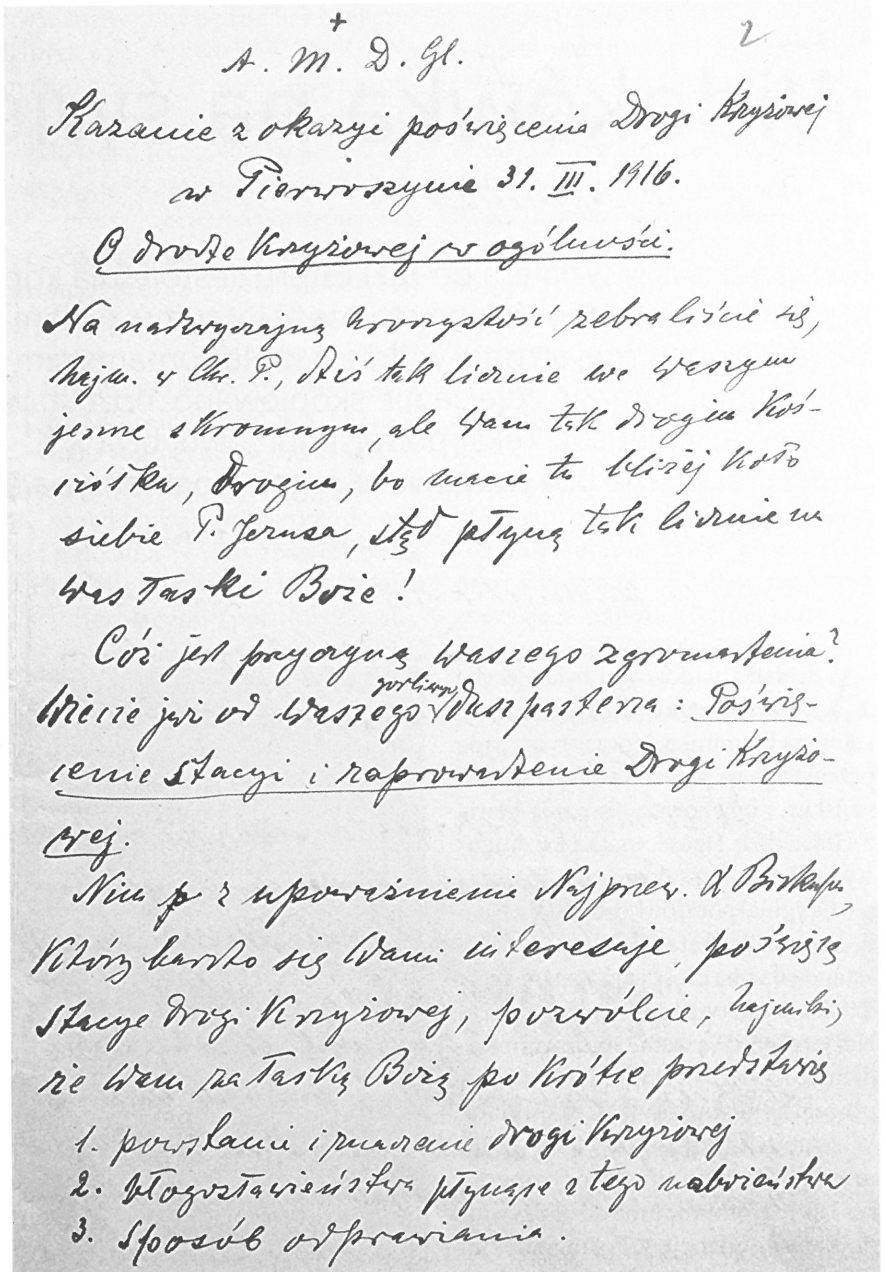 2
+
A. M. D. Gl.
Kazanie z okazyi poświęcenia Drogi Krzyżowej
w Pierwoszynie 31. III. 1916.
O drodze Krzyżowej w ogólności.
Na nadzwyczajną uroczystość zebraliście się,
najm. w Chr. P., dziś tak licznie we waszym
skromnym, ale Wam tak drogim koś-
ciółku, drogim, bo macie tu bliżej koło
siebie P. Jezusa, stąd płyną tak licznie na
was łaski Boże!
Cóż jest przyczyną waszego zgromadzenia?
Wiecie już od waszego gorliwego duszpasterza: Poświę-
cenie Stacyi i zaprowadzenie Drogi Krzyżo-
wej.
Nim z upoważnienia Najprzew. X Biskupa,
który bardzo się Wami interesuje, poświęcę
stacye drogi Krzyżowej, pozwólcie, najmilsi,
że Wam za łaską Bożą po krótce przedstawię
1. powstanie i znaczenie drogi Krzyżowej
2. błogosławieństwa płynące z tego nabożeństwa
3. sposób odprawiania.